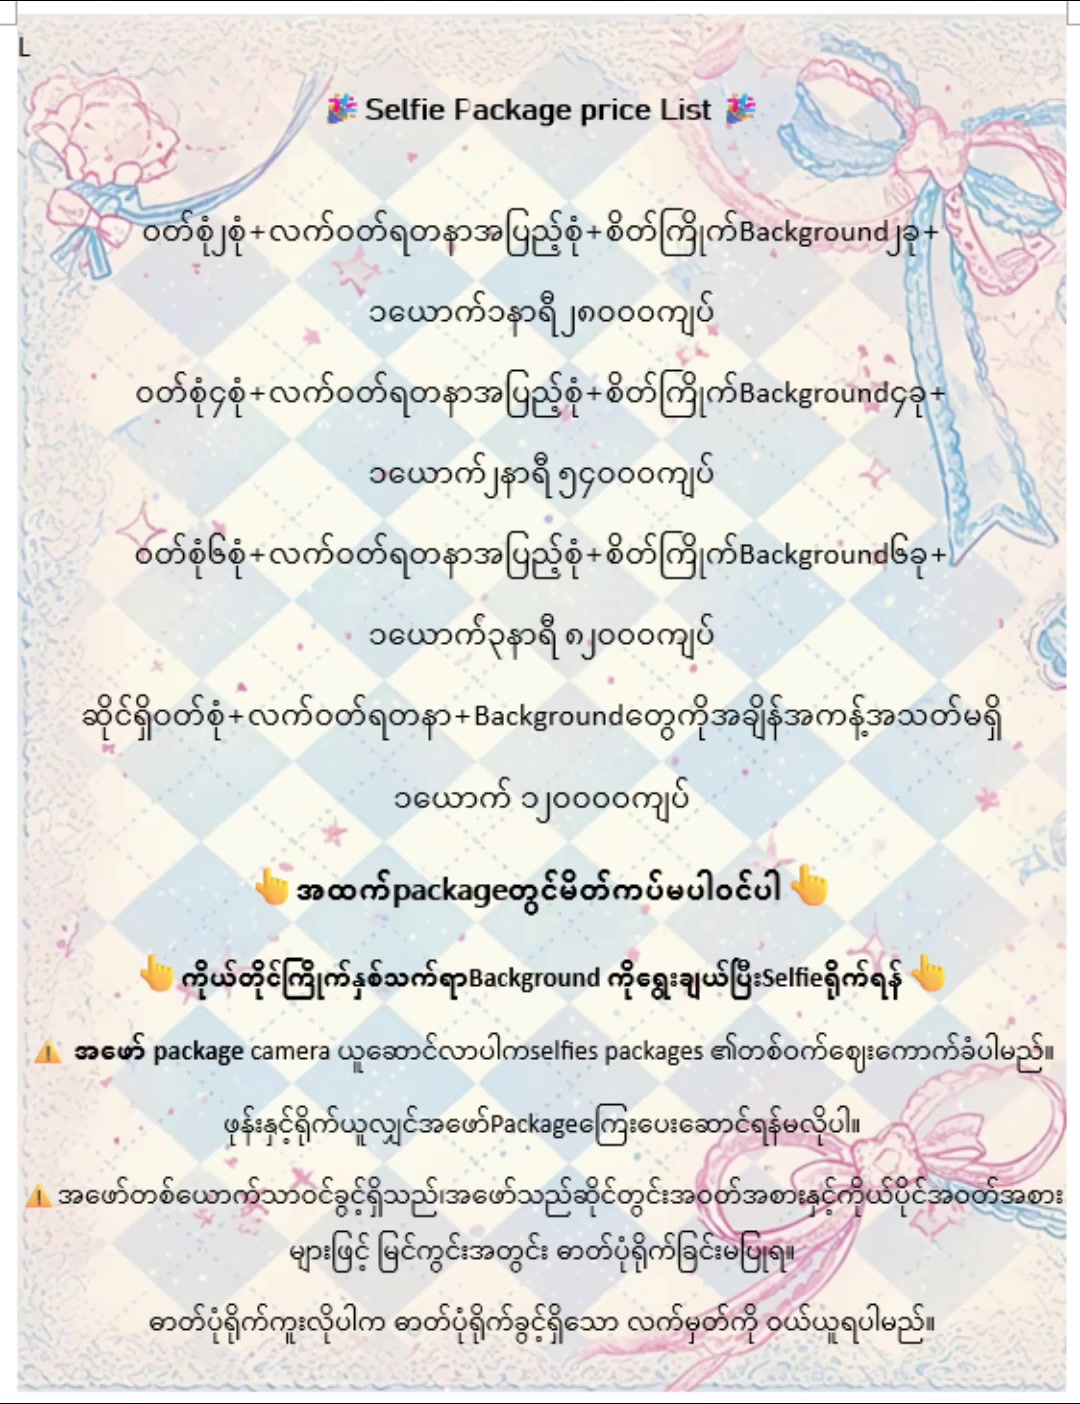 L
🎉 Selfie Package price List 🎉
ဝတ်စုံ၂စုံ+လက်ဝတ်ရတနာအပြည့်စုံ+စိတ်ကြိုက်Background၂ခု+
၁ယောက်၁နာရီ၂၈၀၀၀ကျပ်
ဝတ်စုံ၄စုံ+လက်ဝတ်ရတနာအပြည့်စုံ+စိတ်ကြိုက်Background၄ခု+
၁ယောက်၂နာရီ ၅၄၀၀၀ကျပ်
ဝတ်စုံ၆စုံ+လက်ဝတ်ရတနာအပြည့်စုံ+စိတ်ကြိုက်Background၆ခု+
၁ယောက်၃နာရီ ၈၂၀၀၀ကျပ်
ဆိုင်ရှိဝတ်စုံ+လက်ဝတ်ရတနာ+Backgroundတွေကိုအချိန်အကန့်အသတ်မရှိ
၁ယောက် ၁၂၀၀၀၀ကျပ်
👆 အထက်packageတွင်မိတ်ကပ်မပါဝင်ပါ 👆
👆 ကိုယ်တိုင်ကြိုက်နှစ်သက်ရာBackground ကိုရွေးချယ်ပြီးSelfieရိုက်ရန် 👆
⚠️ အဖော် package camera ယူဆောင်လာပါကselfies packages ၏တစ်ဝက်ဈေးကောက်ခံပါမည်။
ဖုန်းနှင့်ရိုက်ယူလျှင်အဖော်Packageကြေးပေးဆောင်ရန်မလိုပါ။
⚠️ အဖော်တစ်ယောက်သာဝင်ခွင့်ရှိသည်၊အဖော်သည်ဆိုင်တွင်းအဝတ်အစားနှင့်ကိုယ်ပိုင်အဝတ်အစား
များဖြင့် မြင်ကွင်းအတွင်း ဓာတ်ပုံရိုက်ခြင်းမပြုရ။
ဓာတ်ပုံရိုက်ကူးလိုပါက ဓာတ်ပုံရိုက်ခွင့်ရှိသော လက်မှတ်ကို ဝယ်ယူရပါမည်။